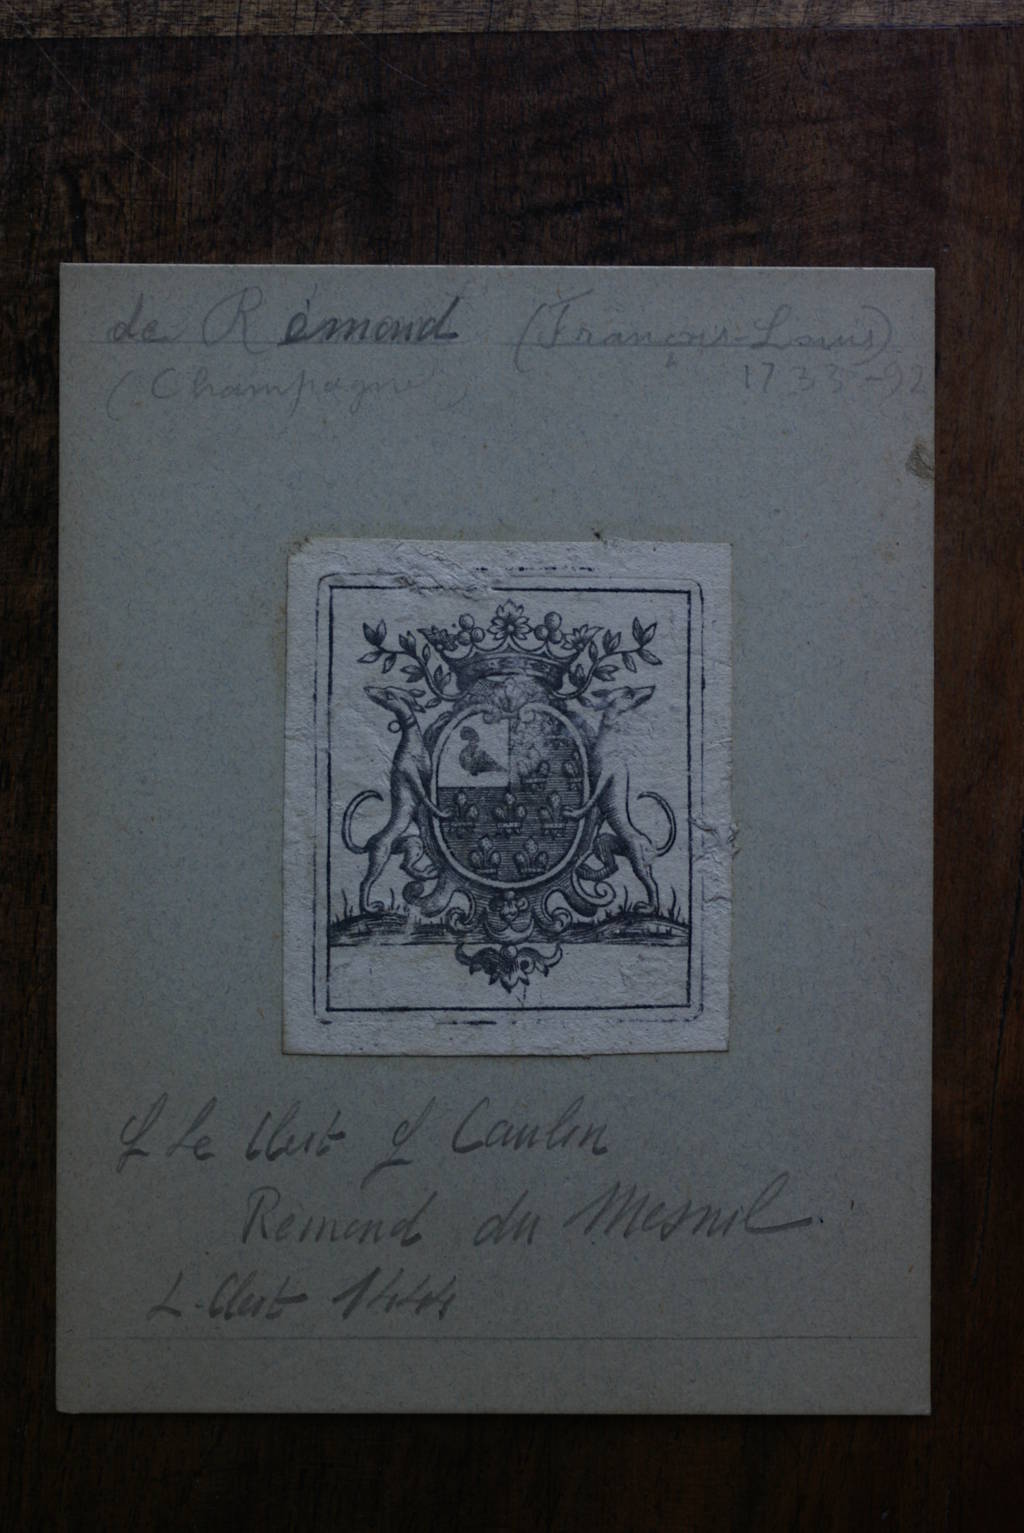 de Rémond (François-Louis)
(Champagne) 1733-92
Le Clert Caulin
Rémond du Mesnil
L. Clert 1444